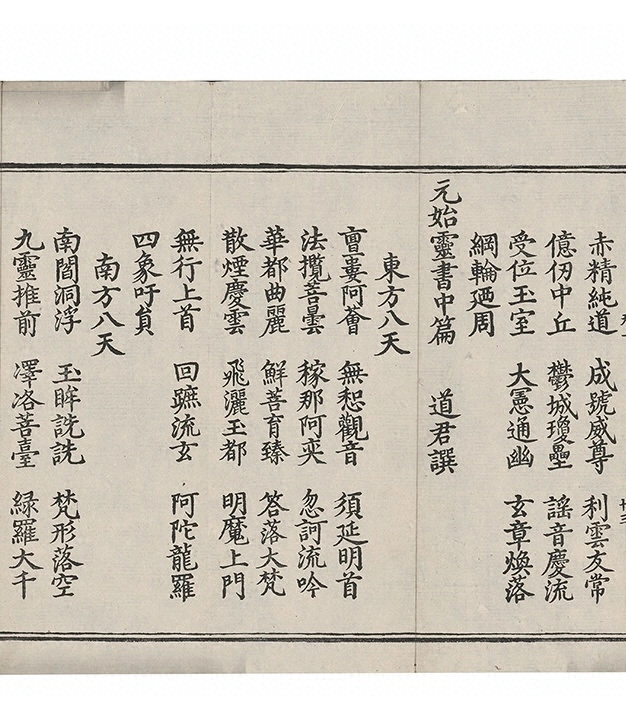 赤精純道 成號威尊 利雲友常
億仞中丘 鬱城瓊壘 謠音慶流
受位玉室 大寰通幽 玄章煥落
綱輪廻周
元始靈書中篇 道君譔
東方八天
亶婁阿薈 無惒觀音 須延明首
法攬菩曇 稼那阿奕 忽訶流吟
華都曲麗 鮮菩育臻 答落大梵
散煙慶雲 飛灑玉都 明魔上門
無行上首 回蹠流玄 阿陀龍羅
四象吁員
南方八天
南閻洞浮 玉眸詵詵 梵形落空
九靈推前 澤洛菩臺 緑羅大千